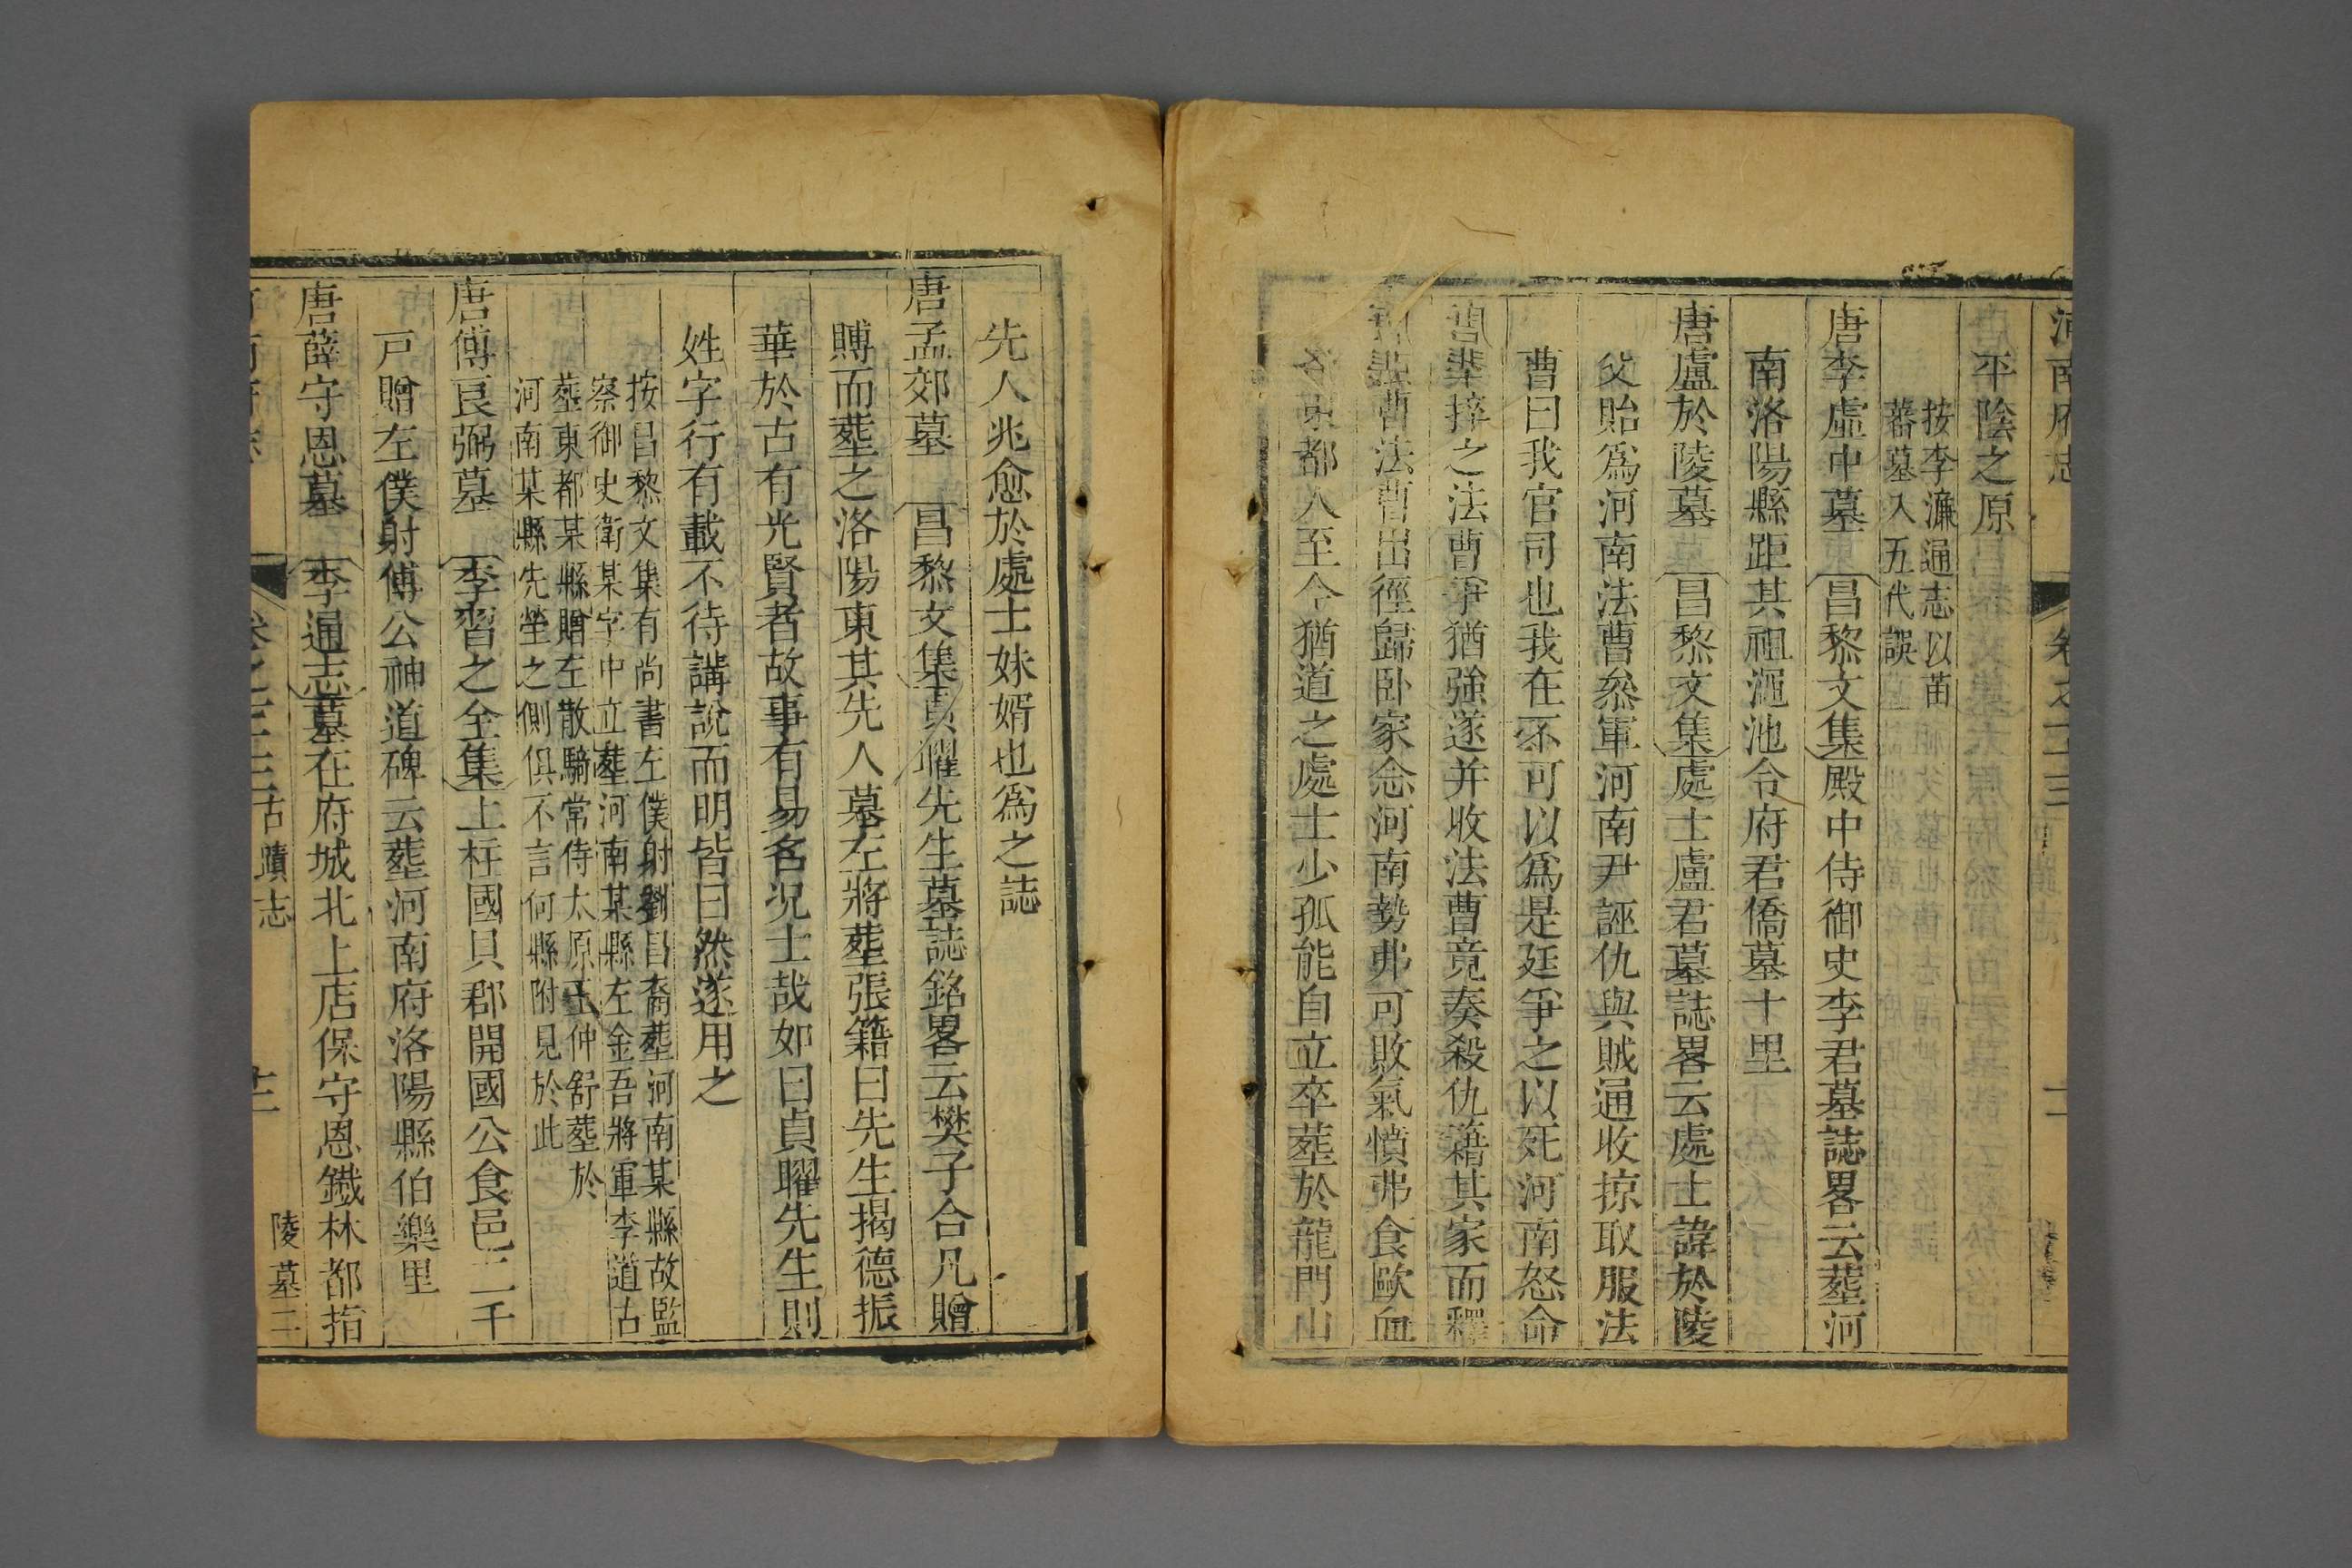 河南府志 卷之十三 古蹟志 十二
平陰之原
按李濂通志以苗
蕃墓入五代誤
唐李虛中墓 昌黎文集殿中侍御史李君墓誌畧云葬河
南洛陽縣距其祖澠池令府君僑墓十里
唐盧於陵墓 昌黎文集處士盧君墓誌畧云處士諱於陵
父貽爲河南法曹叅軍河南尹誣仇與賊通收掠取服法
曹曰我官司也我在不可以爲是廷爭之以死河南怒命
卒捽之法曹爭猶強遂并收法曹竟奏殺仇籍其家而釋
法曹出徑歸卧家念河南勢弗可敗氣憤弗食歐血
東都人至今猶道之處士少孤能自立卒葬於龍門山
先人兆愈於處士妹婿也爲之誌
唐孟郊墓 昌黎文集貞曜先生墓誌銘畧云樊子合凡贈
賻而葬之洛陽東其先人墓左將葬張籍曰先生揭德振
華於古有光賢者故事有易名况士哉如曰貞曜先生則
姓字行有載不待講說而明皆曰然遂用之
按昌黎文集有尚書左僕射劉昌裔葬河南某縣故監
察御史衛某字中立葬河南某縣左金吾將軍李道古
葬東都某縣贈左散騎常侍太原王仲舒葬於
河南某縣先塋之側俱不言何縣附見於此
唐傅良弼墓 李習之全集上柱國貝郡開國公食邑二千
戸贈左僕射傅公神道碑云葬河南府洛陽縣伯樂里
唐薛守恩墓 李通志墓在府城北上店保守恩鐵林都指
河南府志 卷之十三 古蹟志 陵墓二 十三